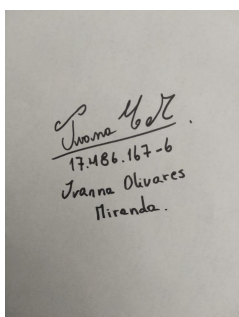 Ivanna M M.
17.486.167-6
Ivanna Olivares
Miranda.